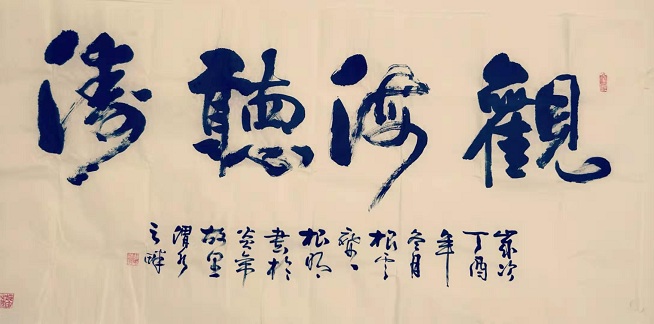 觀海聽濤
歲次
丁酉
年
冬月
松雲
齋
松
書於
炎帝
故里
渭水
之畔